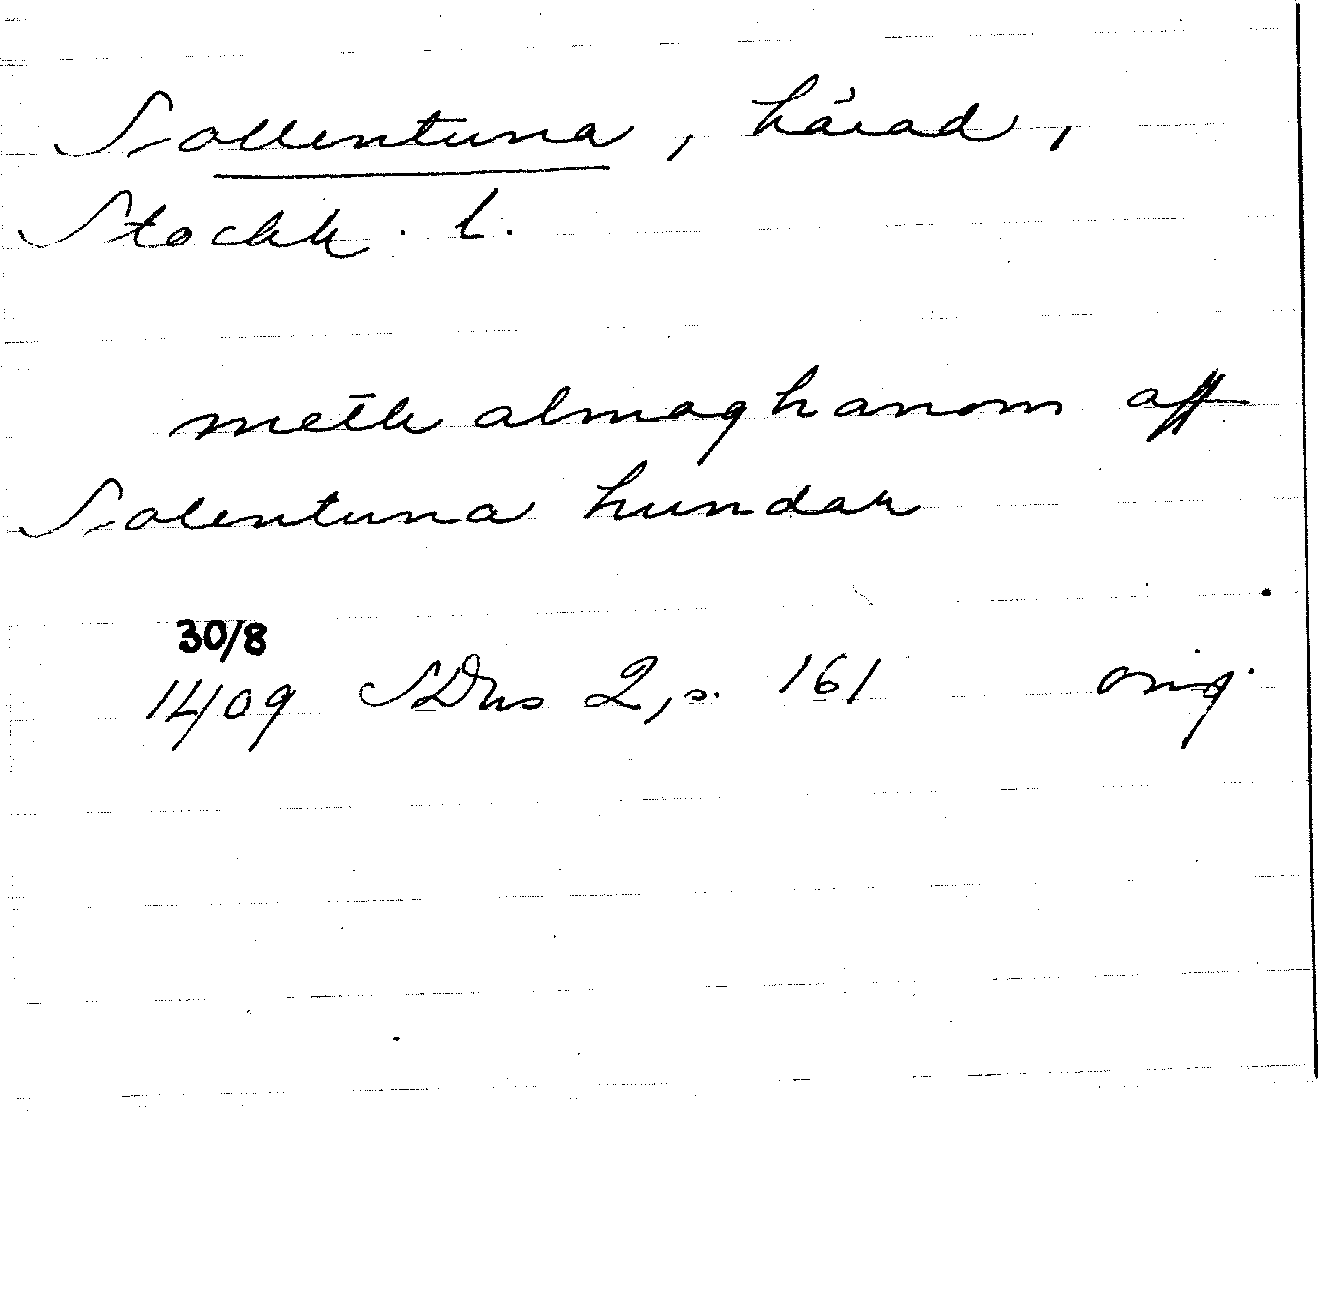 Sollentuna, härad,
Stockh. l.
meth almoghanom aff
Solentuna hundar
30/8
1409 SDns 2, s. 161 orig.